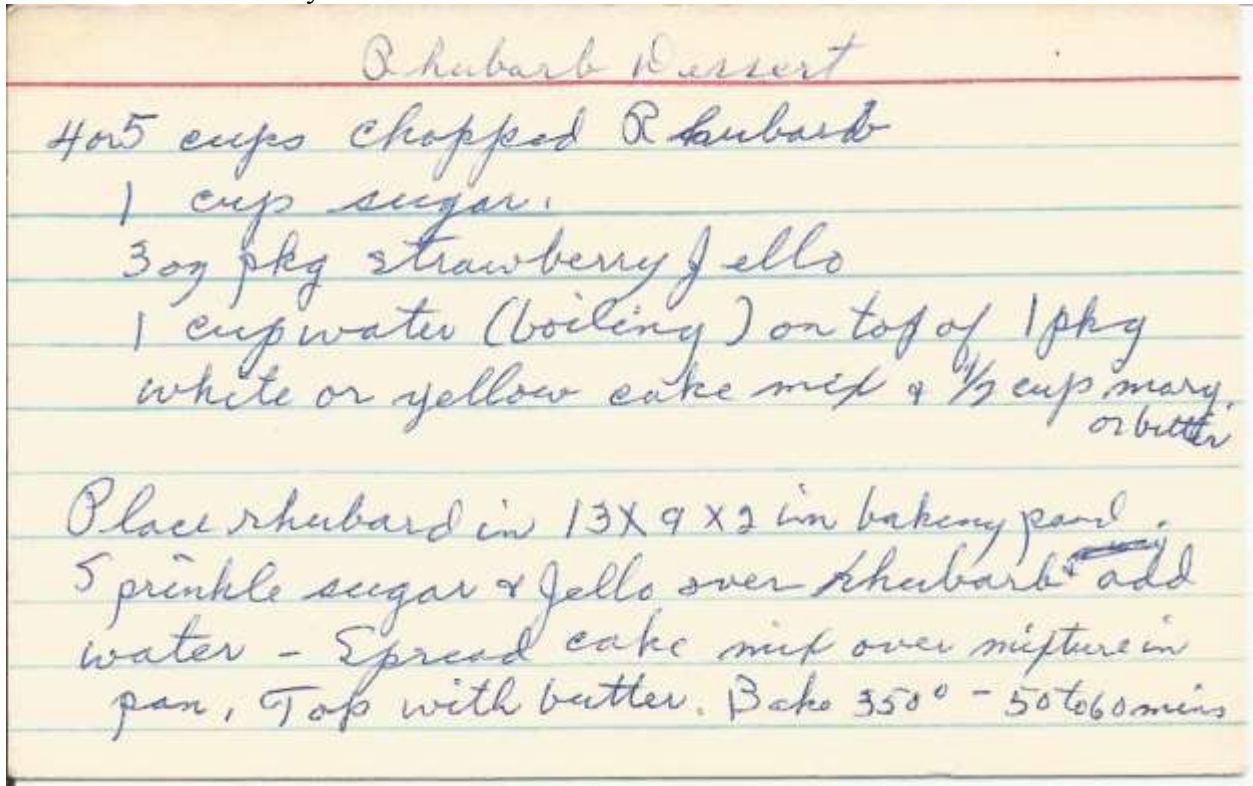 Rhubarb Dessert
4 or 5 cups chopped Rhubarb
1 cup sugar.
3 oz pkg strawberry Jello
1 cup water (boiling) on top of 1 pkg
white or yellow cake mix & 1/2 cup marg.
or butter
Place rhubard in 13 X 9 X 2 in baking pand.
Sprinkle sugar & Jello over rhubarb & add
water - Spread cake mix over mixture in
pan, Top with butter. Bake 350° - 50 to 60 mins